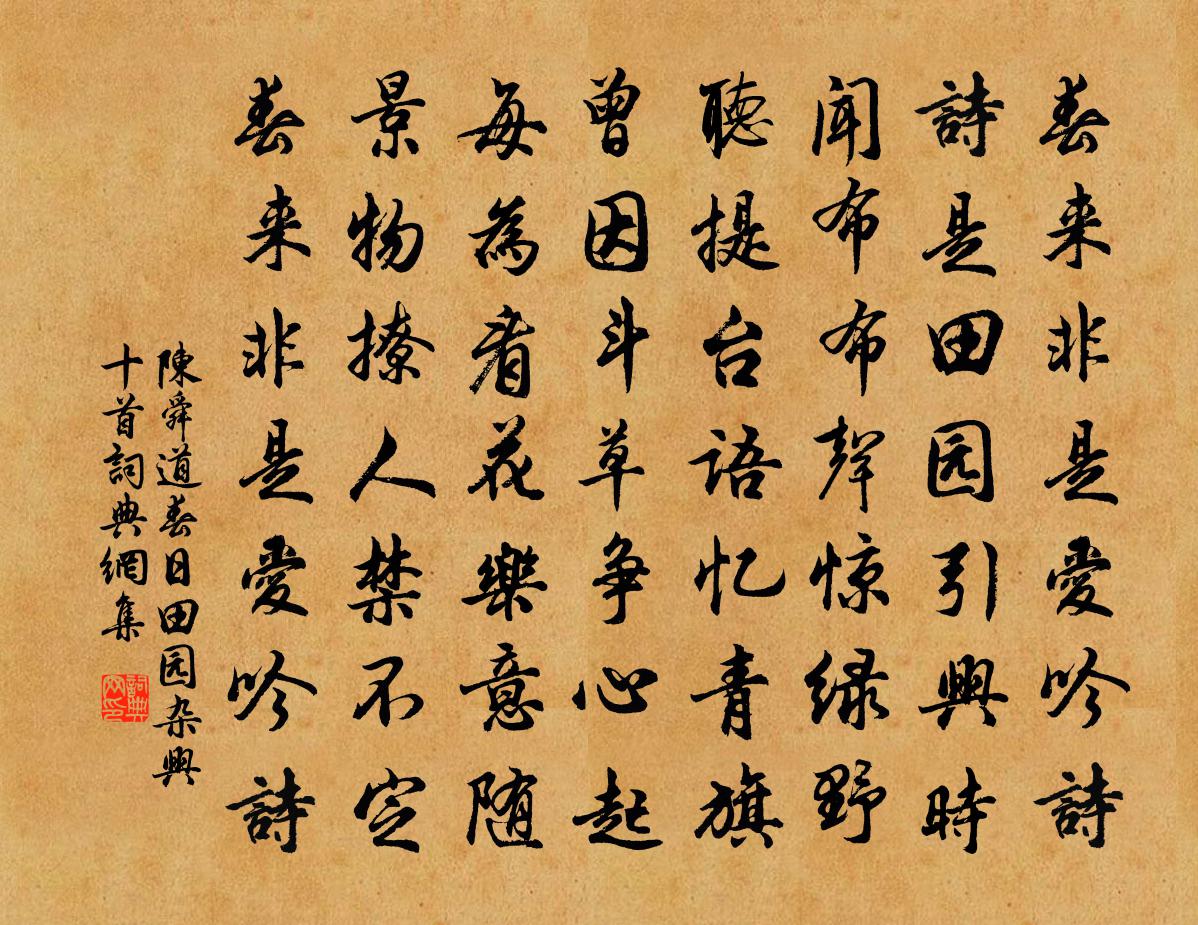 春来非是愛吟詩
詩是田园引興時
闻布布聲惊绿野
聽提台語忆青旗
曾因斗草争心起
每為看花樂意随
景物撩人禁不定
春来非是愛吟詩
陳舜道春日田园杂興
十首詞典網集
詞典
网印